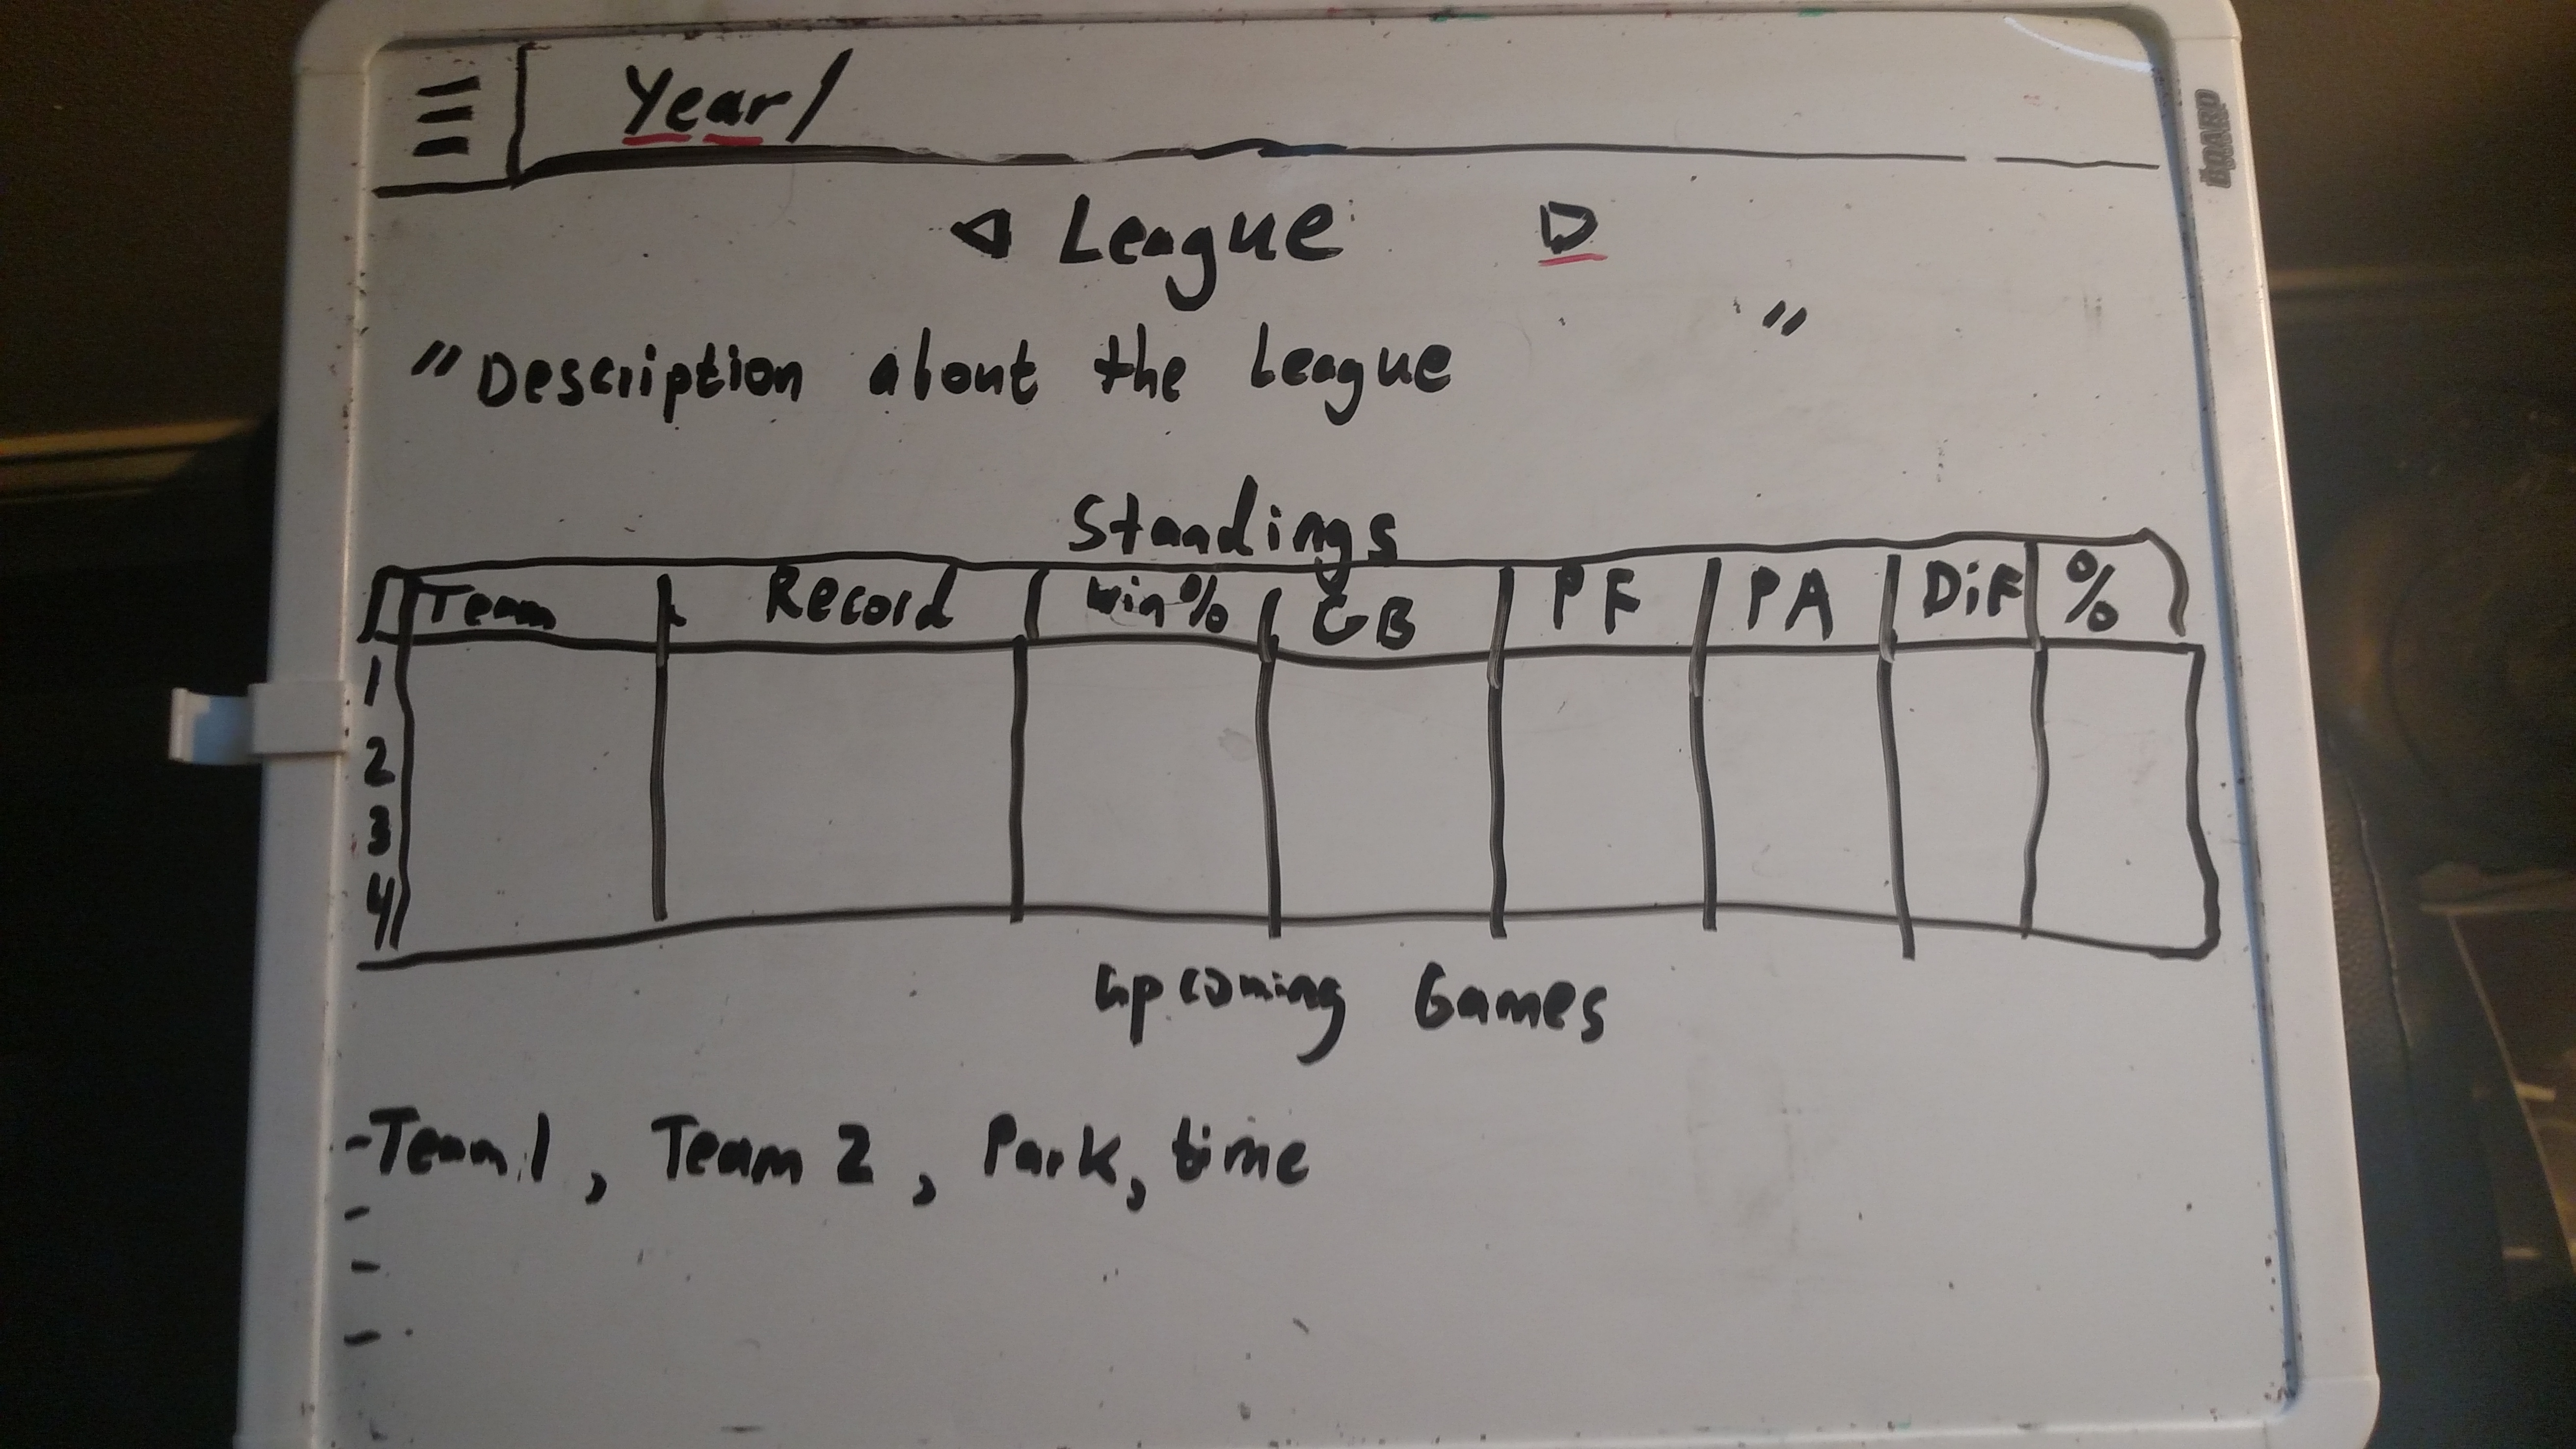 Year/
League
"Description about the League "
Standings
Team Record Win% GB PF PA Dif %
1
2
3
4
Upcoming Games
-Team 1, Team 2, Park, time
-
-
-
BOARD